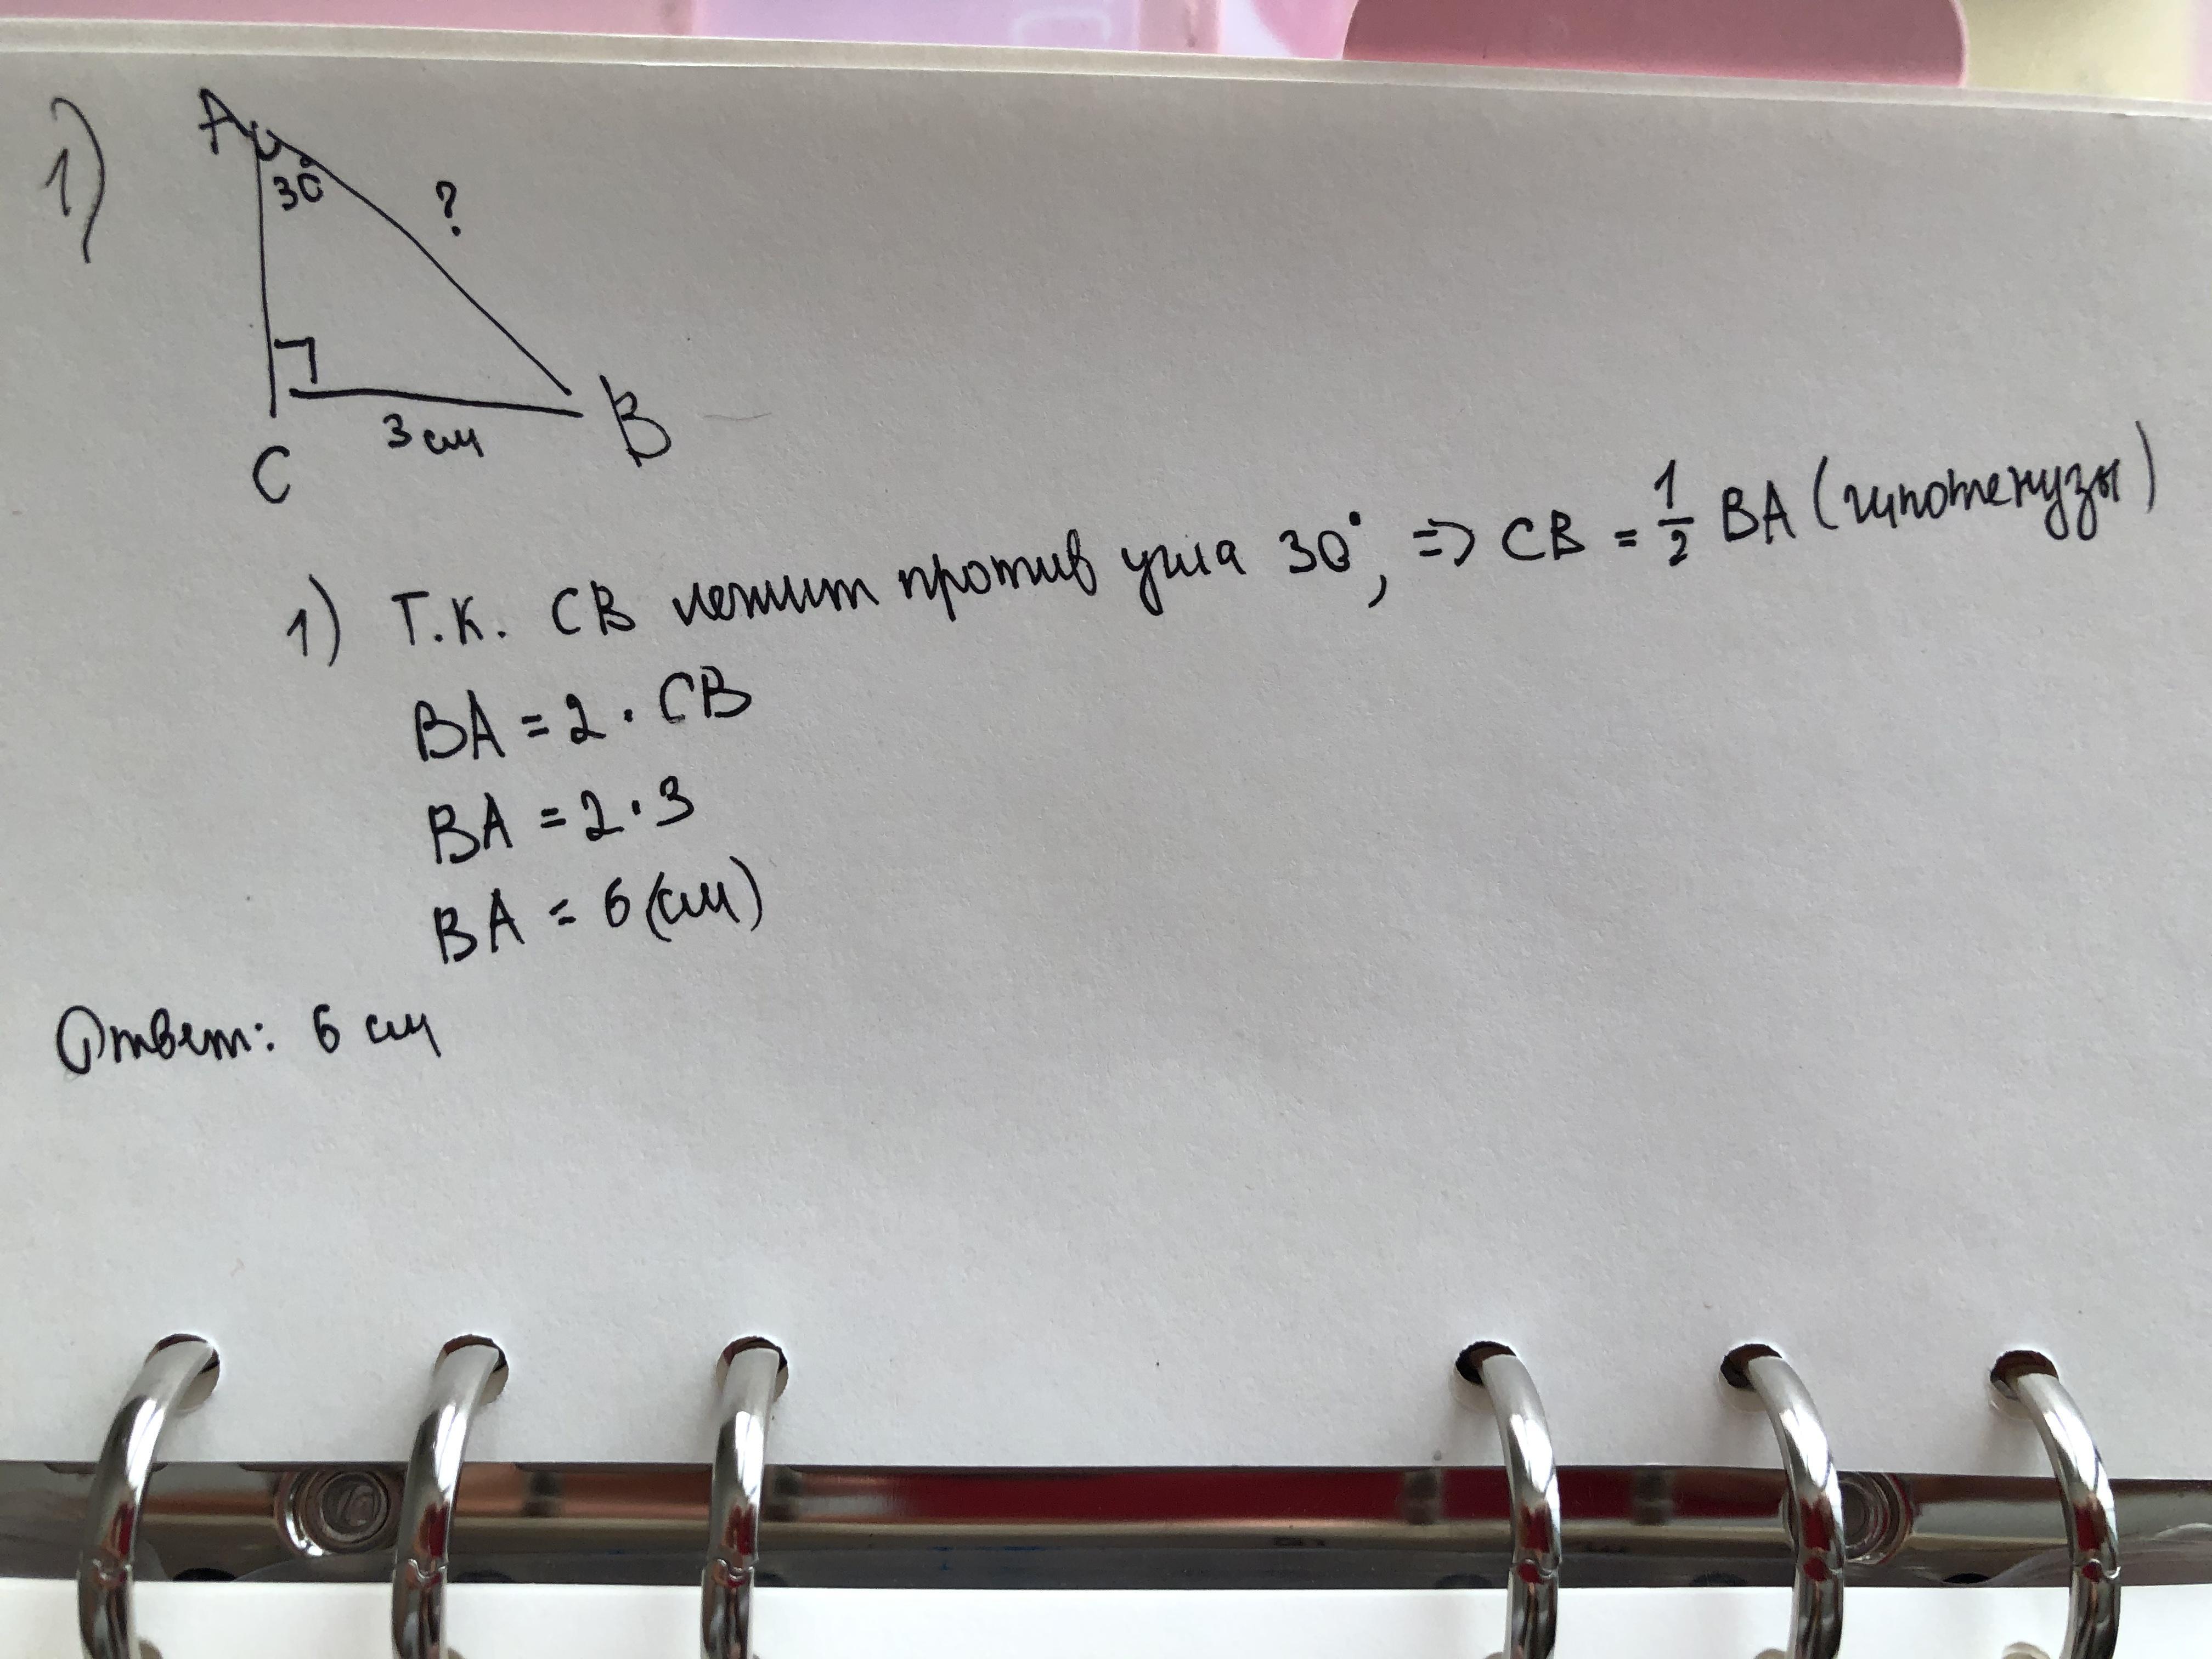 1)
A
30°
?
3 см
C
B
1) Т.к. CB лежит против угла 30°, => CB = 1/2 BA (гипотенузы)
BA = 2 · CB
BA = 2 · 3
BA = 6 (см)
Ответ: 6 см